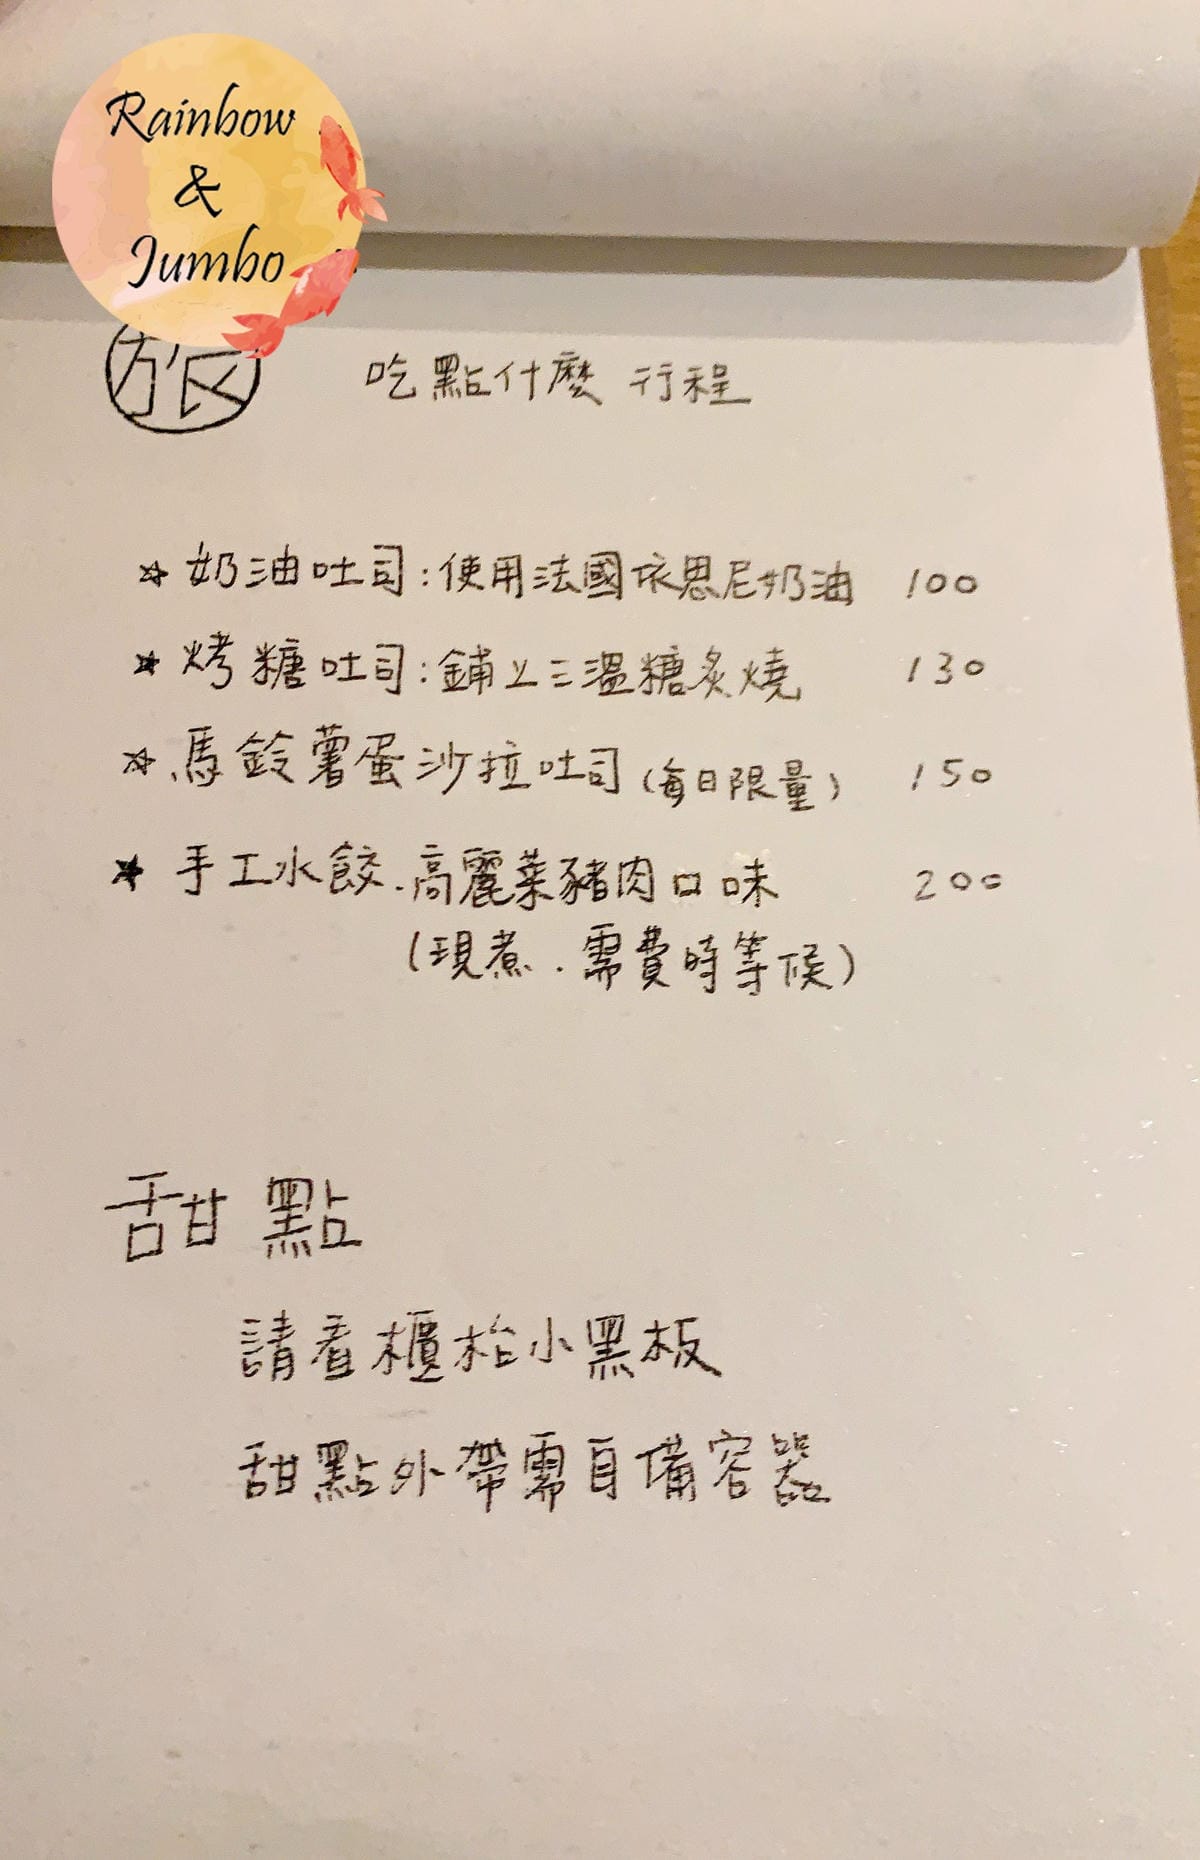 Rainbow
&
Jumbo
旅 吃點什麼 行程
☆ 奶油吐司:使用法國依思尼奶油 100
★ 烤糖吐司:鋪上三溫糖炙燒 130
☆ 馬鈴薯蛋沙拉吐司(每日限量) 150
★ 手工水餃.高麗菜豬肉口味 200
(現煮.需費時等候)
甜點
請看櫃枱小黑板
甜點外帶需自備容器